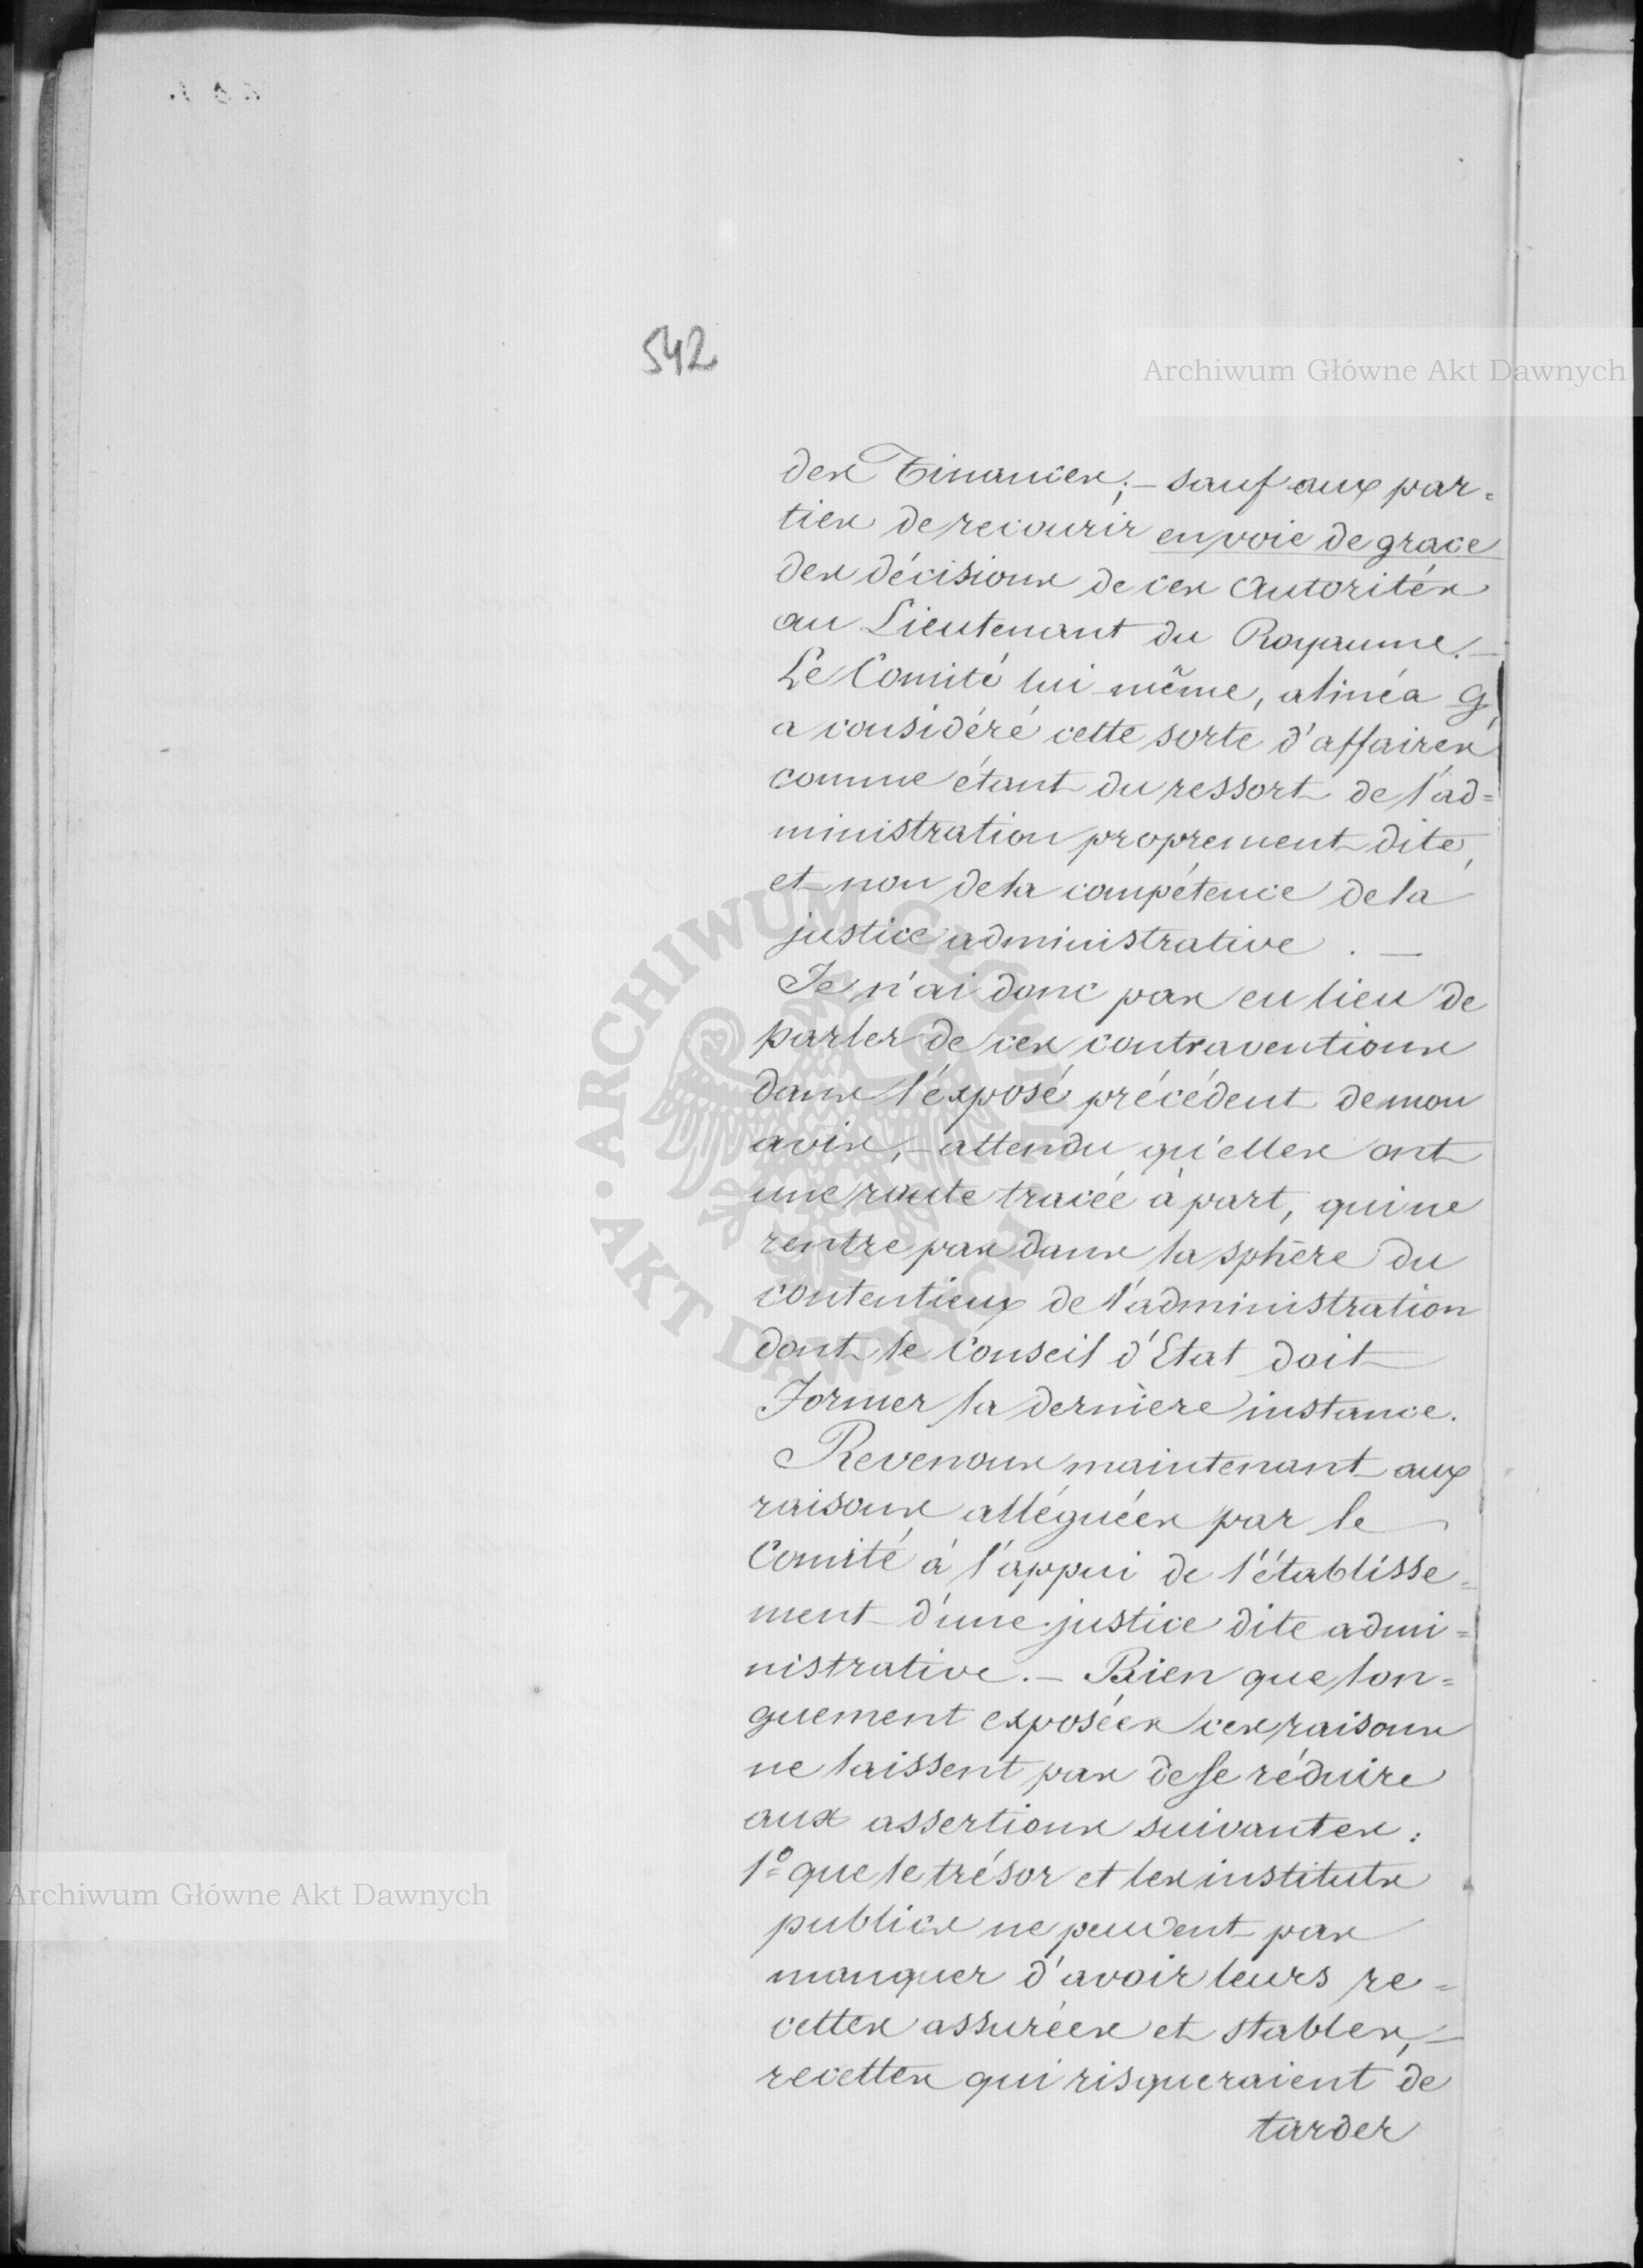 542
Archiwum Główne Akt Dawnych
des Finances; – sauf aux par=
ties de recourir en voie de grace
des décisions de ces Autorités
au Lieutenant du Royaume. –
Le Comité lui même, alinéa G,
a considéré cette sorte d'affaires
comme étant du ressort de l'ad=
ministration proprement dite,
et non de la compétence de la
justice administrative. –
Je n'ai donc pas eu lieu de
parler de ces contraventions
dans l'exposé précédent de mon
avis, – attendu qu'elles ont
une route tracée à part, qui ne
rentre pas dans la sphère du
contentieux de l'administration
dont le Conseil d'Etat doit
former la dernière instance.
Revenons maintenant aux
raisons alléguées par le
Comité à l'appui de l'établisse=
ment d'une justice dite admi=
nistrative. – Bien que lon=
guement exposées ces raisons
ne laissent pas de se réduire
aux assertions suivantes:
1º que le trésor et les instituts
publics ne peuvent pas
manquer d'avoir leurs re=
cettes assurées et stables, –
recettes qui risqueraient de
tarder
Archiwum Główne Akt Dawnych
ARCHIWUM GŁÓWNE AKT DAWNYCH